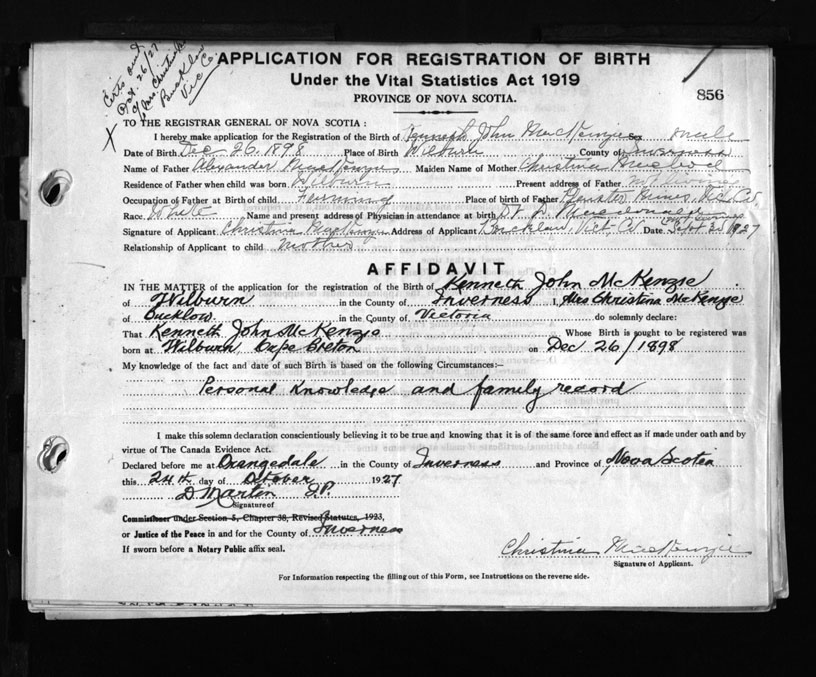 APPLICATION FOR REGISTRATION OF BIRTH
Under the Vital Statistics Act 1919
PROVINCE OF NOVA SCOTIA.
856
Oct. 26/27
TO THE REGISTRAR GENERAL OF NOVA SCOTIA:
I hereby make application for the Registration of the Birth of Kenneth John MacKenzie Sex male
Date of Birth. Dec 26, 1898 Place of Birth Wilburn County of Inverness
Name of Father Alexander MacKenzie Maiden Name of Mother Christina
Residence of Father when child was born Wilburn Present address of Father
Occupation of Father at Birth of child Farming Place of birth of Father Vict Co.
Race. White Name and present address of Physician in attendance at birth
Signature of Applicant Christina MacKenzie Address of Applicant Bucklaw, Vict. Co Date 1927
Relationship of Applicant to child mother
AFFIDAVIT
IN THE MATTER of the application for the registration of the Birth of Kenneth John McKenzie
of Wilburn in the County of Inverness I, Mrs Christina McKenzie
of Bucklow in the County of Victoria do solemnly declare:
That Kenneth John McKenzie Whose Birth is sought to be registered was
born at Wilburn, Cape Breton on Dec 26/1898
My knowledge of the fact and date of such Birth is based on the following Circumstances:—
Personal Knowledge and family record
I make this solemn declaration conscientiously believing it to be true and knowing that it is of the same force and effect as if made under oath and by
virtue of The Canada Evidence Act.
Declared before me at Orangedale in the County of Inverness and Province of Nova Scotia
this 24th day of October 1927
D Martin J.P.
Signature of
Commissioner under Section 5, Chapter 38, Revised Statutes, 1923,
or Justice of the Peace in and for the County of Inverness
If sworn before a Notary Public affix seal.
Christina MacKenzie
Signature of Applicant.
For Information respecting the filling out of this Form, see Instructions on the reverse side.